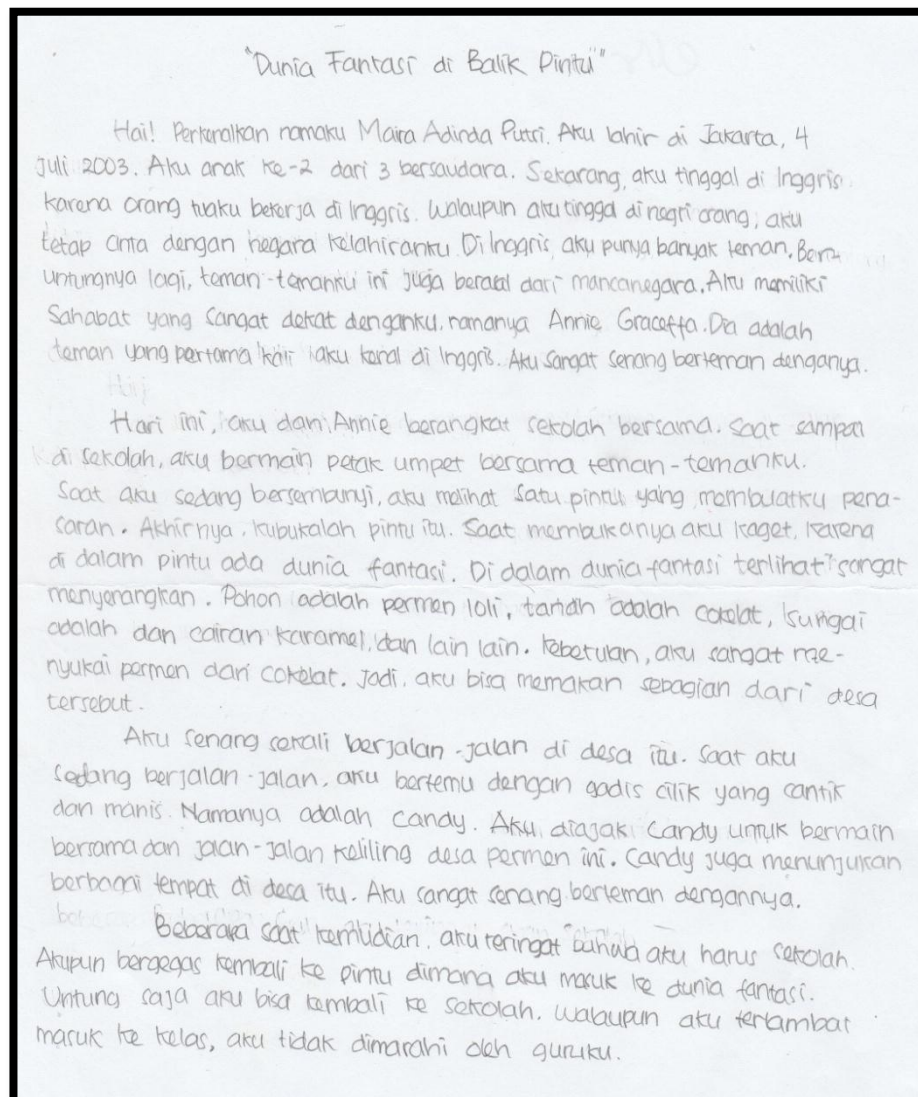 "Dunia Fantasi di Balik Pintu"
Hai! Perkenalkan namaku Maira Adinda Putri. Aku lahir di Jakarta, 4
Juli 2003. Aku anak ke-2 dari 3 bersaudara. Sekarang, aku tinggal di Inggris
karena orang tuaku bekerja di Inggris. Walaupun aku tinggal di negri orang, aku
tetap cinta dengan negara kelahiranku. Di Inggris, aku punya banyak teman. Beru-
untungnya lagi, teman-temanku ini juga berasal dari mancanegara. Aku memiliki
Sahabat yang sangat dekat denganku, namanya Annie Graceffa. Dia adalah
teman yang pertama kali aku kenal di Inggris. Aku sangat senang berteman denganya.
Hari ini, aku dan Annie berangkat sekolah bersama. Saat sampai
di sekolah, aku bermain petak umpet bersama teman-temanku.
Saat aku sedang bersembunyi, aku melihat satu pintu yang membuatku pena-
saran. Akhirnya, kubukalah pintu itu. Saat membukanya aku kaget, karena
di dalam pintu ada dunia fantasi. Di dalam dunia fantasi terlihat sangat
menyenangkan. Pohon adalah permen loli, tanah adalah cokelat, sungai
adalah dan cairan karamel, dan lain lain. Kebetulan, aku sangat me-
nyukai permen dari cokelat. Jadi, aku bisa memakan sebagian dari desa
tersebut.
Aku senang sekali berjalan-jalan di desa itu. Saat aku
sedang berjalan-jalan, aku bertemu dengan gadis cilik yang cantik
dan manis. Namanya adalah Candy. Aku diajak Candy untuk bermain
bersama dan jalan-jalan keliling desa permen ini. Candy juga menunjukan
berbagai tempat di desa itu. Aku sangat senang berteman dengannya.
Beberapa saat kemudian, aku teringat bahwa aku harus sekolah.
Akupun bergegas kembali ke pintu dimana aku masuk ke dunia fantasi.
Untung saja aku bisa kembali ke sekolah. Walaupun aku terlambat
masuk ke kelas, aku tidak dimarahi oleh guruku.